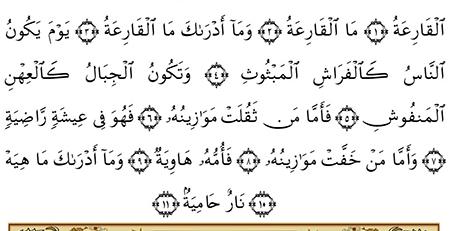 ٱلْقَارِعَةُ ﴿١﴾ مَا ٱلْقَارِعَةُ ﴿٢﴾ وَمَآ أَدْرَىٰكَ مَا ٱلْقَارِعَةُ ﴿٣﴾ يَوْمَ يَكُونُ
ٱلنَّاسُ كَٱلْفَرَاشِ ٱلْمَبْثُوثِ ﴿٤﴾ وَتَكُونُ ٱلْجِبَالُ كَٱلْعِهْنِ
ٱلْمَنفُوشِ ﴿٥﴾ فَأَمَّا مَن ثَقُلَتْ مَوَٰزِينُهُۥ ﴿٦﴾ فَهُوَ فِى عِيشَةٍ رَّاضِيَةٍ
﴿٧﴾ وَأَمَّا مَنْ خَفَّتْ مَوَٰزِينُهُۥ ﴿٨﴾ فَأُمُّهُۥ هَاوِيَةٌ ﴿٩﴾ وَمَآ أَدْرَىٰكَ مَا هِيَهْ
﴿١٠﴾ نَارٌ حَامِيَةٌۢ ﴿١١﴾